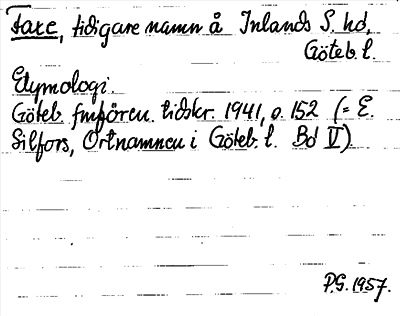 Fare, tidigare namn å Inlands S. hd,
Göteb. l.
Etymologi.
Göteb. fmfören. tidskr. 1941, s. 152 (= E.
Silfors, Ortnamnen i Göteb. l. Bd IV).
P.G. 1957.